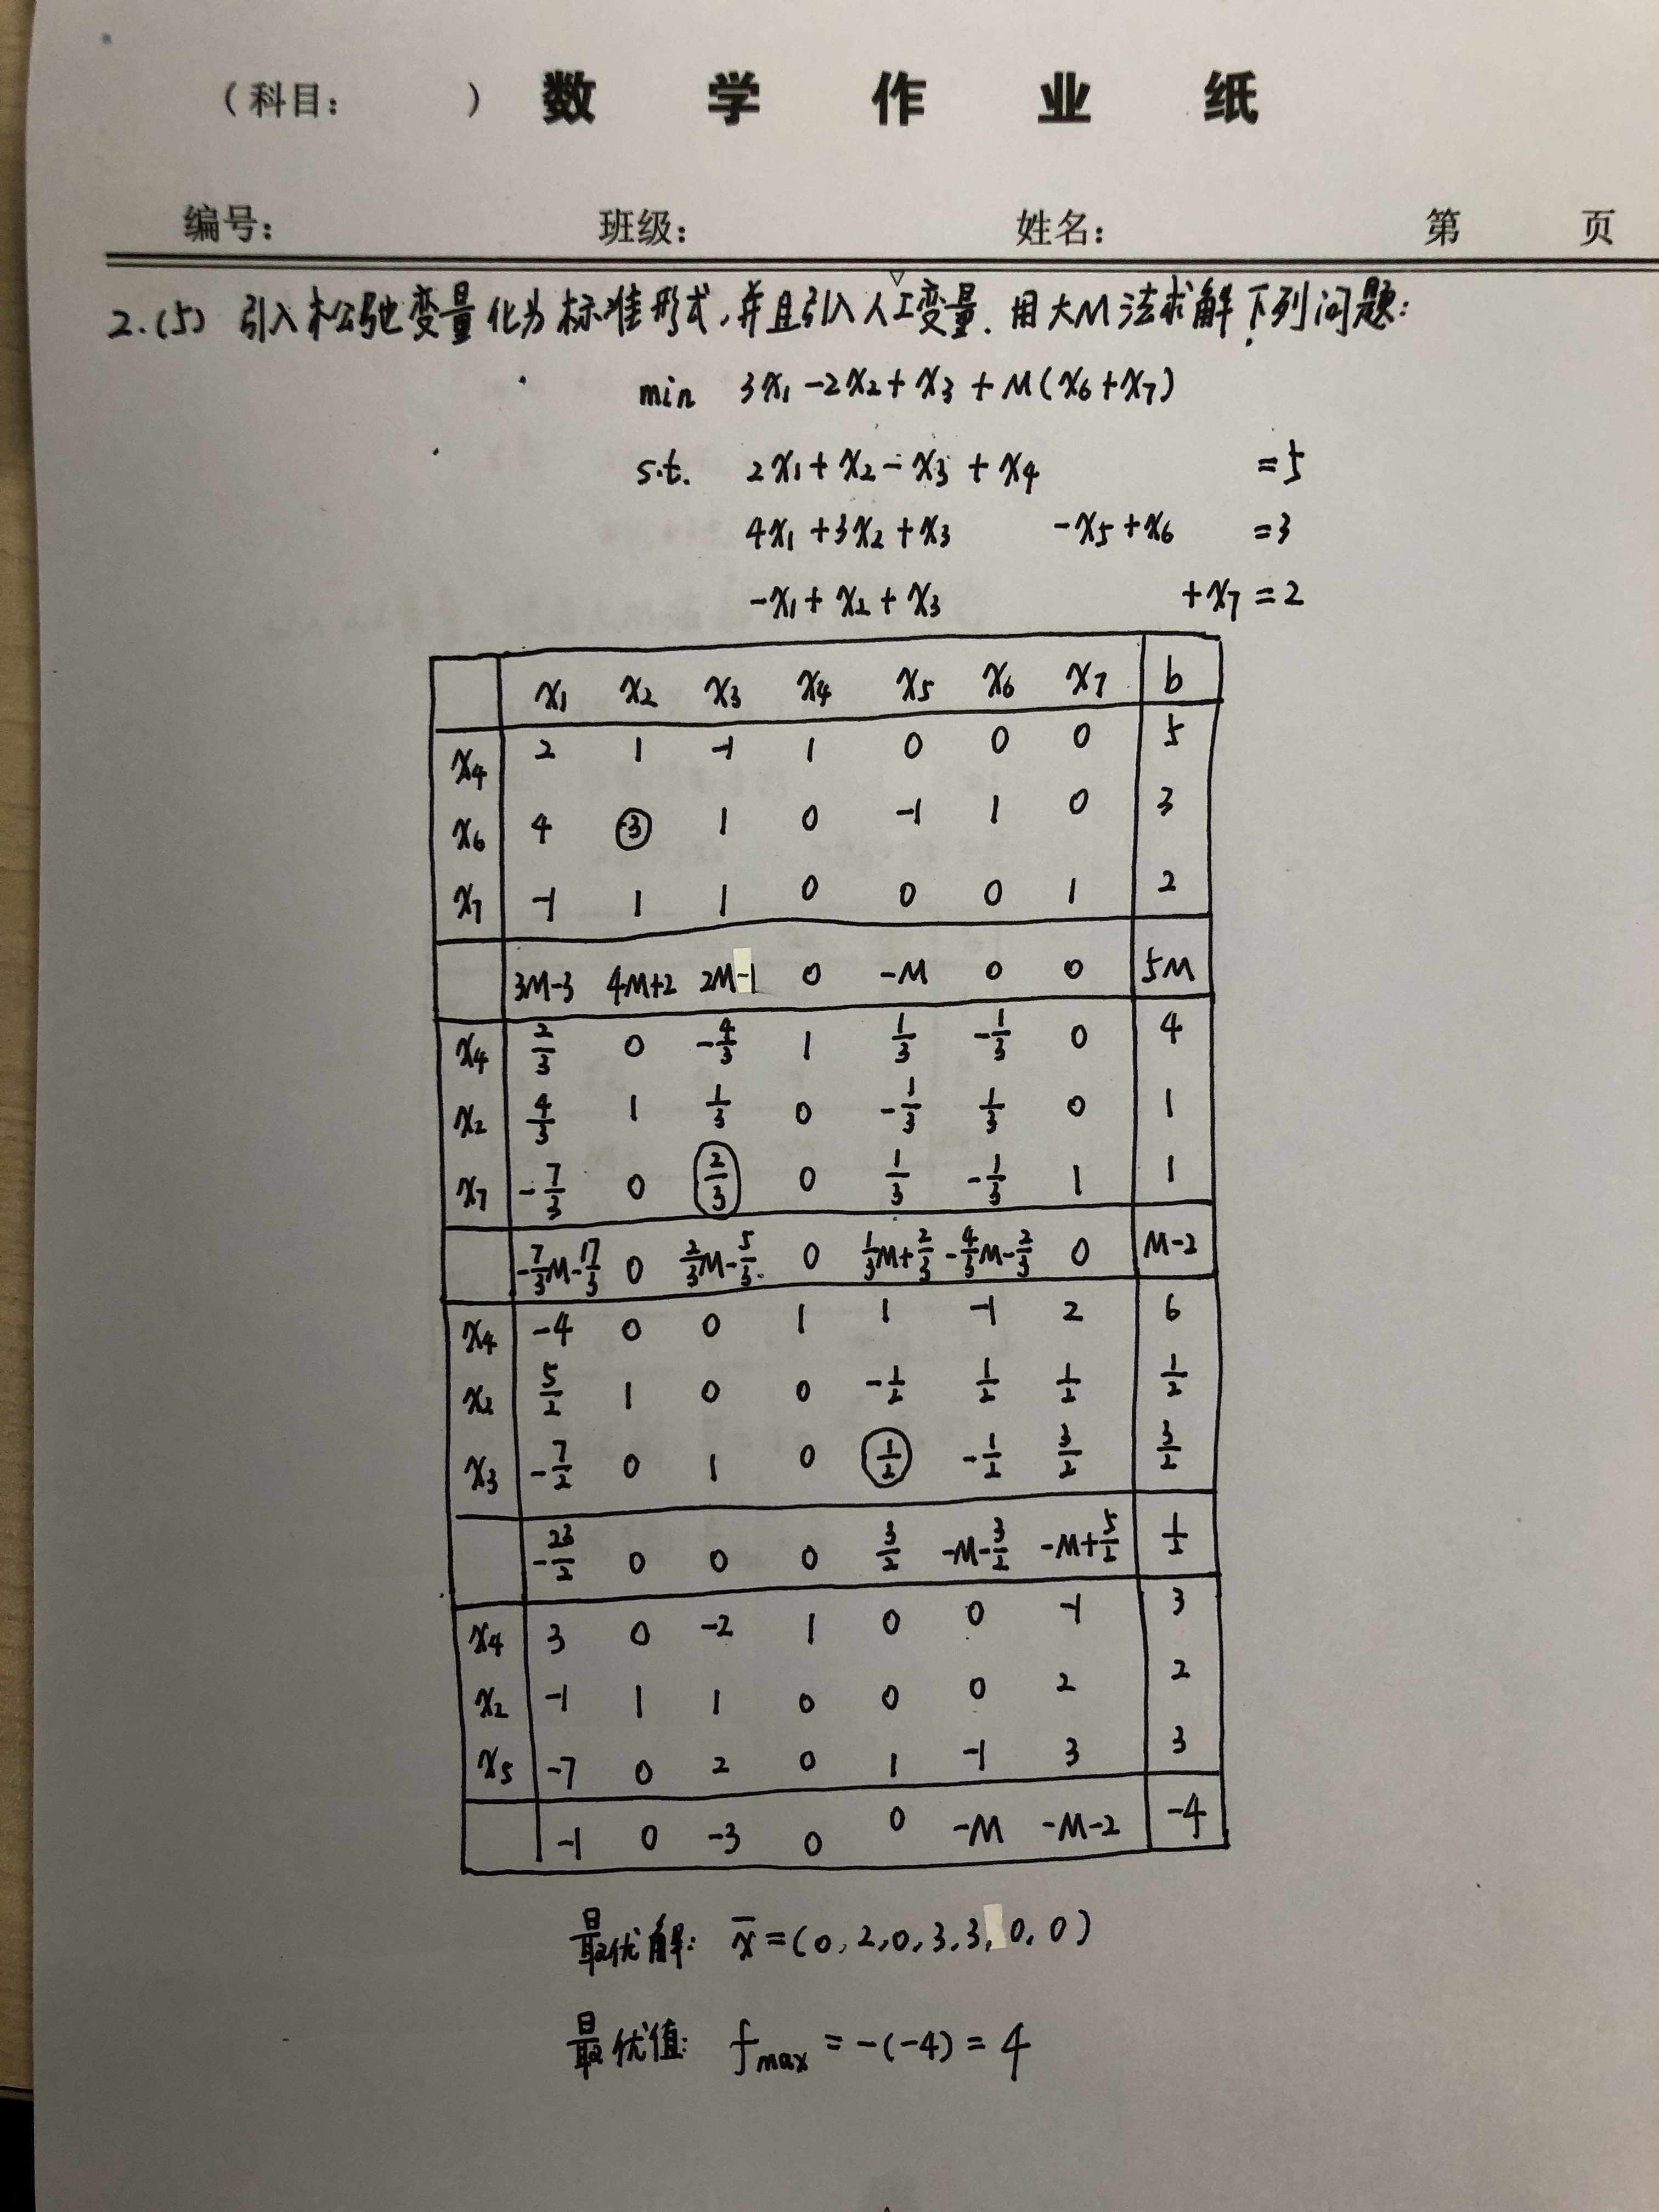 （科目： ） 数 学 作 业 纸
编号： 班级： 姓名： 第 页
2.(5) 引入松弛变量化为标准形式,并且引入人工变量.用大M法求解下列问题:
min 3x₁-2x₂+x₃+M(x₆+x₇)
s.t. 2x₁+x₂-x₃+x₄ =5
4x₁+3x₂+x₃ -x₅+x₆ =3
-x₁+x₂+x₃ +x₇=2
x₁ x₂ x₃ x₄ x₅ x₆ x₇ b
x₄ 2 1 -1 1 0 0 0 5
x₆ 4 3 1 0 -1 1 0 3
x₇ -1 1 1 0 0 0 1 2
3M-3 4M+2 2M-1 0 -M 0 0 5M
x₄ 2/3 0 -4/3 1 1/3 -1/3 0 4
x₂ 4/3 1 1/3 0 -1/3 1/3 0 1
x₇ -7/3 0 2/3 0 1/3 -1/3 1 1
-7/3M-17/3 0 2/3M-5/3 0 1/3M+2/3 -4/3M-2/3 0 M-2
x₄ -4 0 0 1 1 -1 2 6
x₂ 5/2 1 0 0 -1/2 1/2 1/2 1/2
x₃ -7/2 0 1 0 1/2 -1/2 3/2 3/2
-23/2 0 0 0 3/2 -M-3/2 -M+5/2 1/2
x₄ 3 0 -2 1 0 0 -1 3
x₂ -1 1 1 0 0 0 2 2
x₅ -7 0 2 0 1 -1 3 3
-1 0 -3 0 0 -M -M-2 -4
最优解: x̄=(0,2,0,3,3,0,0)
最优值: fmax=-(-4)=4